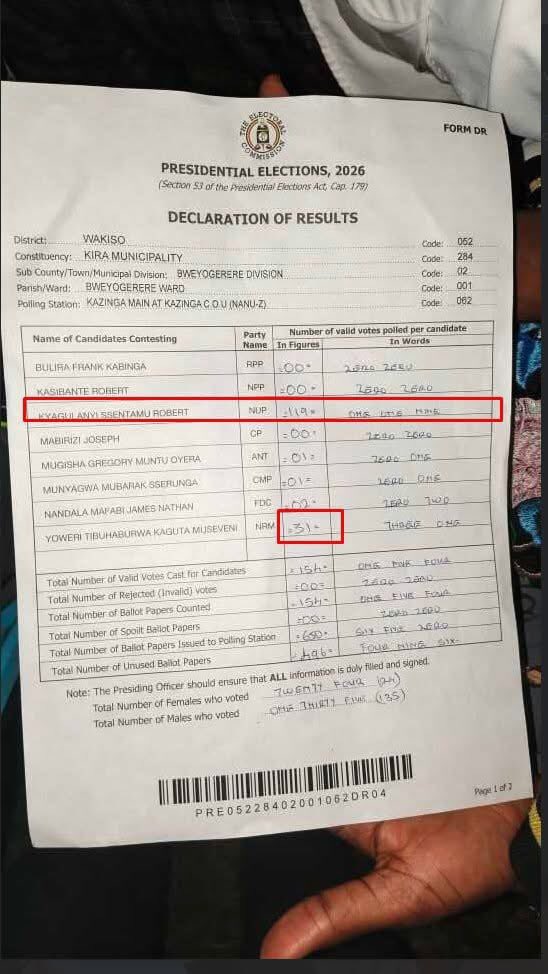 THE ELECTORAL COMMISSION
FORM DR
PRESIDENTIAL ELECTIONS, 2026
(Section 53 of the Presidential Elections Act, Cap. 179)
DECLARATION OF RESULTS
District: WAKISO Code: 052
Constituency: KIRA MUNICIPALITY Code: 284
Sub County/Town/Municipal Division: BWEYOGERERE DIVISION Code: 02
Parish/Ward: BWEYOGERERE WARD Code: 001
Polling Station: KAZINGA MAIN AT KAZINGA C.O.U (NANU-Z) Code: 062
Name of Candidates Contesting Party Name Number of valid votes polled per candidate
In Figures In Words
BULIRA FRANK KABINGA RPP =00= ZERO ZERO
KASIBANTE ROBERT NPP =00= ZERO ZERO
KYAGULANYI SSENTAMU ROBERT NUP =119= ONE ONE NINE
MABIRIZI JOSEPH CP =00= ZERO ZERO
MUGISHA GREGORY MUNTU OYERA ANT =01= ZERO ONE
MUNYAGWA MUBARAK SSERUNGA CMP =01= ZERO ONE
NANDALA MAFABI JAMES NATHAN FDC =02= ZERO TWO
YOWERI TIBUHABURWA KAGUTA MUSEVENI NRM =31= THREE ONE
Total Number of Valid Votes Cast for Candidates =154= ONE FIVE FOUR
Total Number of Rejected (Invalid) votes =00= ZERO ZERO
Total Number of Ballot Papers Counted =154= ONE FIVE FOUR
Total Number of Spoilt Ballot Papers =00= ZERO ZERO
Total Number of Ballot Papers Issued to Polling Station =650= SIX FIVE ZERO
Total Number of Unused Ballot Papers =496= FOUR NINE SIX
Note: The Presiding Officer should ensure that ALL information is duly filled and signed.
Total Number of Females who voted TWENTY FOUR (24)
Total Number of Males who voted ONE THIRTY FIVE (135)
PRE05228402001062DR04
Page 1 of 2